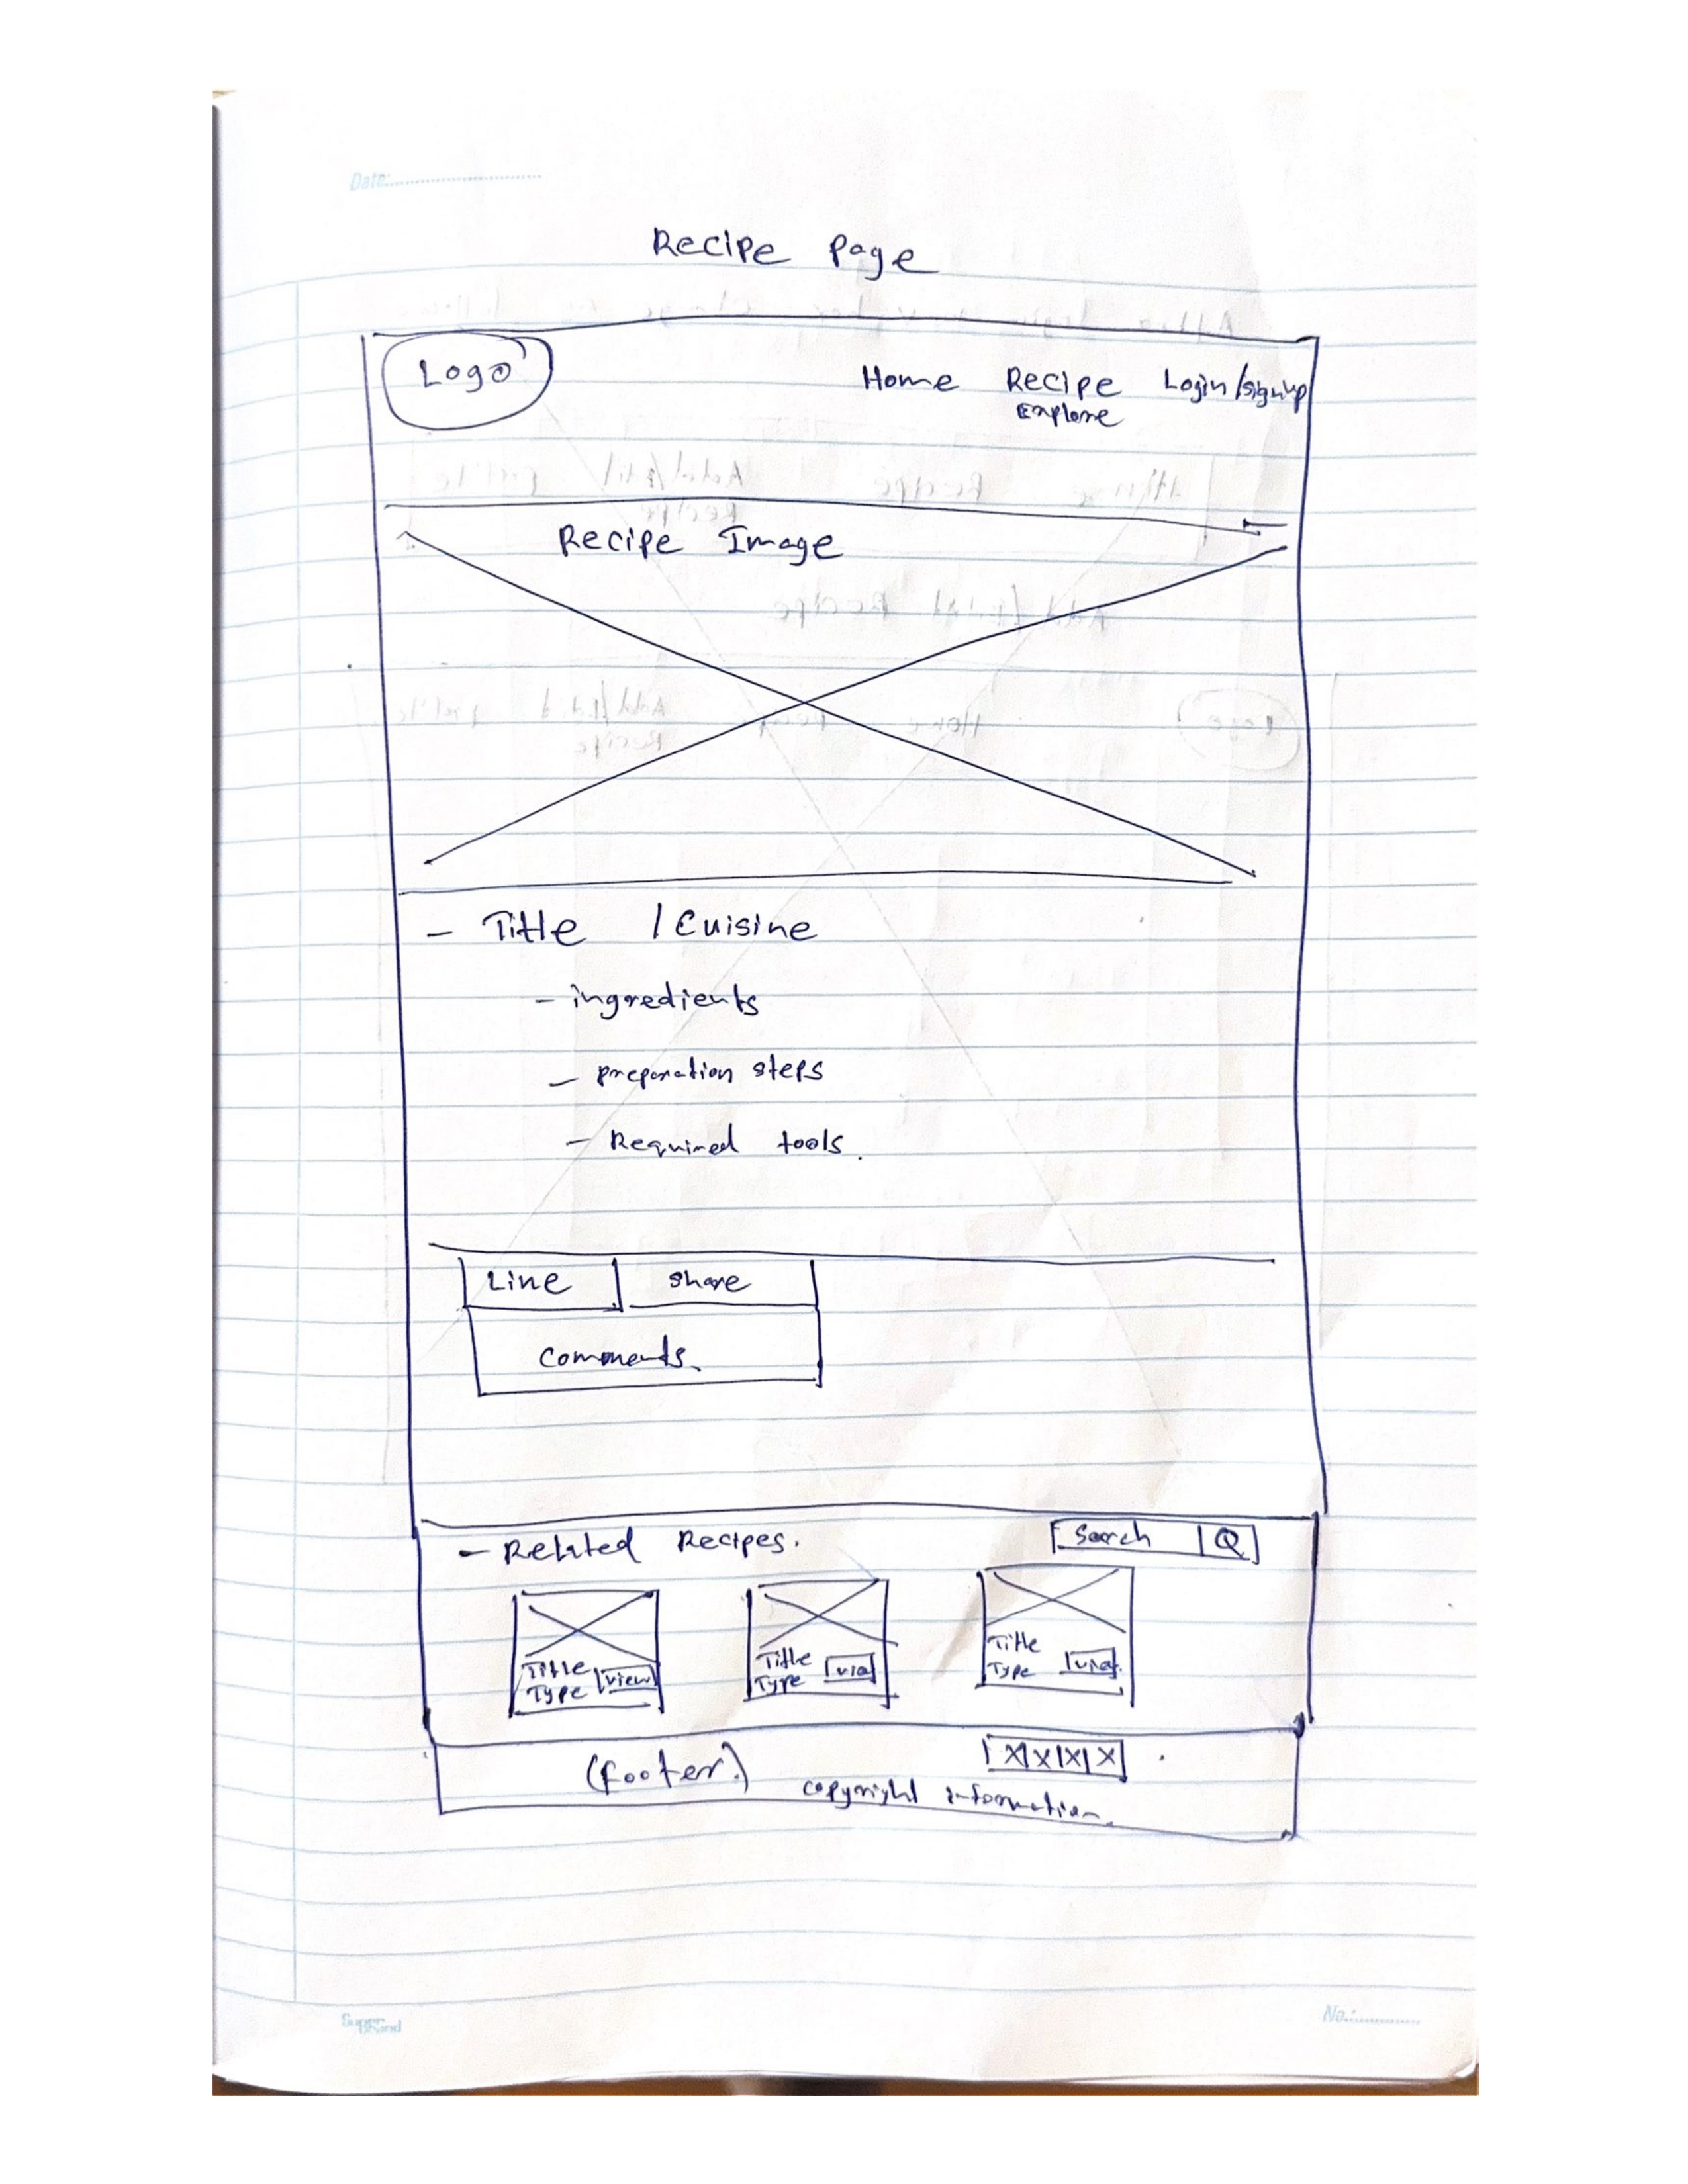 Date:
Recipe Page
Logo
Home Recipe Login/signup
Explore
Recipe Image
- Title / Cuisine
- ingredients
- preparation steps
- Required tools.
Line share
comments.
- Related Recipes. Search Q
Title
Type view
Title
Type
Title
Type
(footer) X X X X
copyright information.
Super
No.: